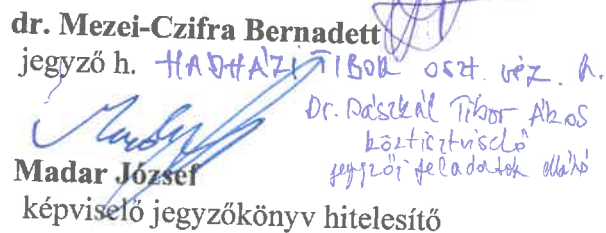 dr. Mezei-Czifra Bernadett
jegyző h. HADHÁZI TIBOR oszt. vez. h.
Dr. Paszkál Tibor Ákos
köztisztviselő
jegyzői feladatok ellátó
Madar József
képviselő jegyzőkönyv hitelesítő